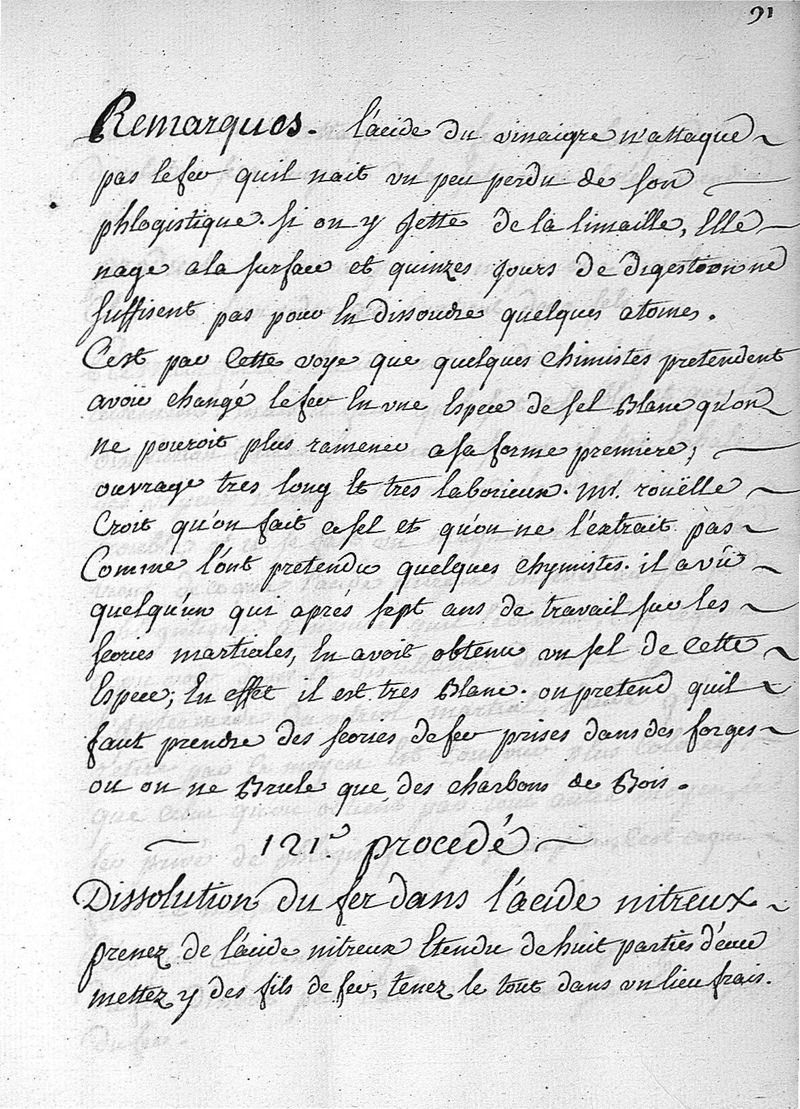 91
Remarques. l'acide du vinaigre n'attaque
pas le fer quil nait un peu perdu de son
phlogistique. si on y jette de la limaille, Elle
nage a la surface et quinzes jours de digestion ne
suffisent pas pour En dissoudre quelques atomes.
C'est par Cette voye que quelques Chimistes pretendent
avoir changé le fer En une Espece de sel Blanc qu'on
ne pouroit plus ramener a sa forme premiere;
ouvrage tres long Et tres laborieux. Mr. rouëlle
Croit qu'on fait ce sel et qu'on ne l'extrait pas
Comme l'ont pretendu quelques chymistes. il a vû
quelqu'un qui aprés sept ans de travail sur les
scories martiales, En avoit obtenu un sel de Cette
Espece; En effet il est tres Blanc. on pretend quil
faut prendre des scories de fer prises dans des forges
ou on ne Brule que des charbons de Bois.
121e. procedé
Dissolution du fer dans l'acide nitreux
prenez de l'acide nitreux Etendu de huit parties d'eau
mettez y des fils de fer, tenez le tout dans un lieu frais.